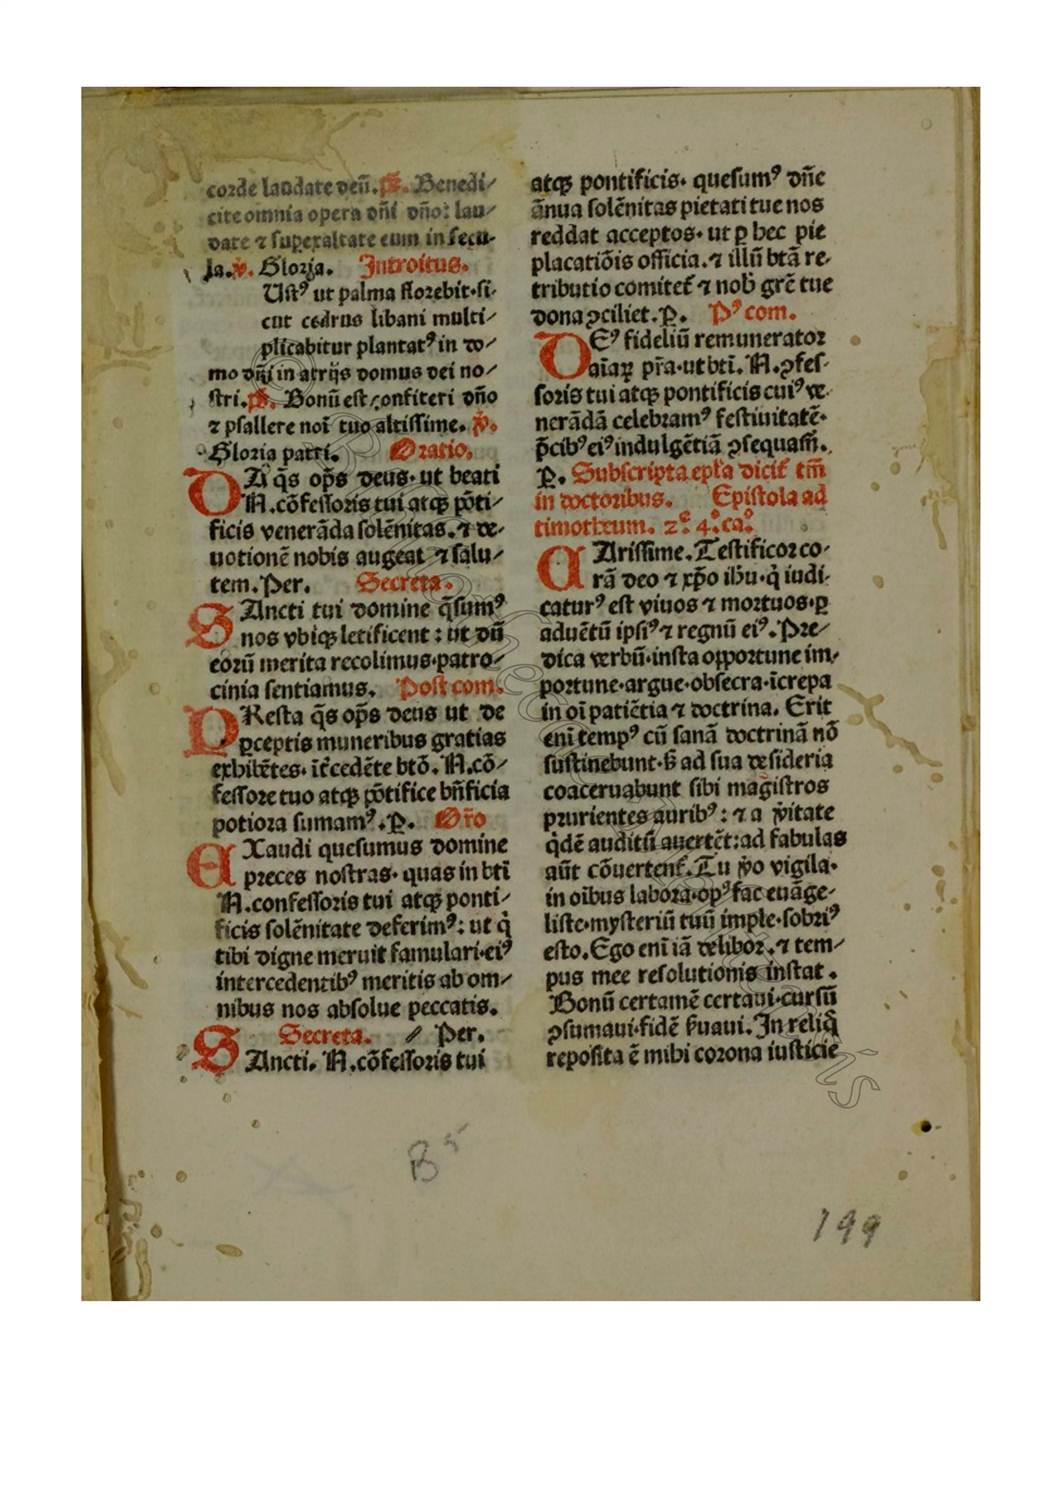 corde laudate deū. p̄s. Benedi/
cite omnia opera dn̄i dn̄o: lau/
date ⁊ superexaltate eum in secu-
la. v̄. Gloria. Introitus.
Ustꝰ ut palma florebit·si-
cut cedrus libani multi/
plicabitur plantatꝰ in do/
mo dn̄i in atrijs domus dei no/
stri. p̄s. Bonū est confiteri dn̄o
⁊ psallere noī tuo altissime. v̄.
Gloria patri. Oratio.
DA q̄s op̄s deus·ut beati
N.cōfessoris tui atqꝫ pōti-
ficis venerāda solēnitas.⁊ de-
uotionē nobis augeat ⁊ salu-
tem. Per. Secreta.
SAncti tui domine q̄sumꝰ
nos vbiqꝫ letificent: ut dū
eorū merita recolimus·patro-
cinia sentiamus. Post com.
PResta q̄s op̄s deus ut de
ꝑceptis muneribus gratias
exhibētes· īt̄cedēte btō. N.cō/
fessore tuo atqꝫ pōtifice bn̄ficia
potiora sumamꝰ. P. Or̄o
EXaudi quesumus domine
preces nostras· quas in btī
N.confessoris tui atqꝫ ponti/
ficis solēnitate deferimꝰ: ut q̇
tibi digne meruit famulari·eiꝰ
intercedentibꝰ meritis ab om/
nibus nos absolue peccatis.
Secreta. // Per.
SAncti. N.cōfessoris tui
atqꝫ pontificis· quesumꝰ dn̄e
ānua solēnitas pietati tue nos
reddat acceptos· ut ꝑ hec pie
placatiōis officia.⁊ illū btā re-
tributio comitet̄ ⁊ nob̄ grē tue
dona ꝯciliet. P. Pꝰ com.
DEꝰ fideliū remunerator
aīaꝝ pr̄a·ut btī. N.ꝯfes-
soris tui atqꝫ pontificis cuiꝰ ve-
nerādā celebramꝰ festiuitatē·
p̄cibꝰ eiꝰ indulgētiā ꝯsequam̄.
P. Subscripta epl̄a dicit̄ tm̄
in doctoribus. Epistola ad
timotheum. 2ͤ. 4. caº.
CArissime. Testificor co-
rā deo ⁊ xp̄o ih̄u·q̇ iudi-
caturꝰ est viuos ⁊ mortuos·ꝑ
aduētū ipsiꝰ ⁊ regnū eiꝰ. Pre/
dica verbū·insta opportune im/
portune·argue·obsecra·īcrepa
in oī patiētia ⁊ doctrina. Erit
enī tempꝰ cū sanā doctrinā nō
sustinebunt·s̄ ad sua desideria
coaceruabunt sibi magistros
prurientes auribꝰ: ⁊ a v̄itate
q̇dē auditū auertēt: ad fabulas
aūt cōuertent̄. Tu v̊o vigila·
in oībus labora·opꝰ fac euāge-
liste·mysteriū tuū imple·sobriꝰ
esto. Ego enī iā delibor.⁊ tem/
pus mee resolutionis instat.
Bonū certamē certaui·cursū
ꝯsumaui·fidē s̄uaui. In reliq̇
reposita ē mihi corona iusticie
B⁵
199